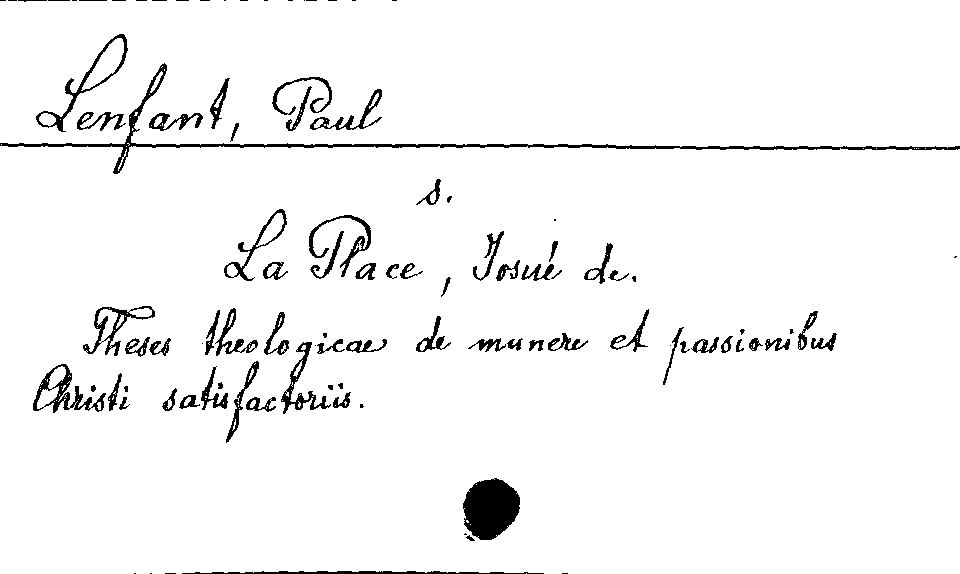 Lenfant, Paul
s.
La Place, Josué de.
Theses theologicae de munere et passionibus
Christi satisfactoriis.